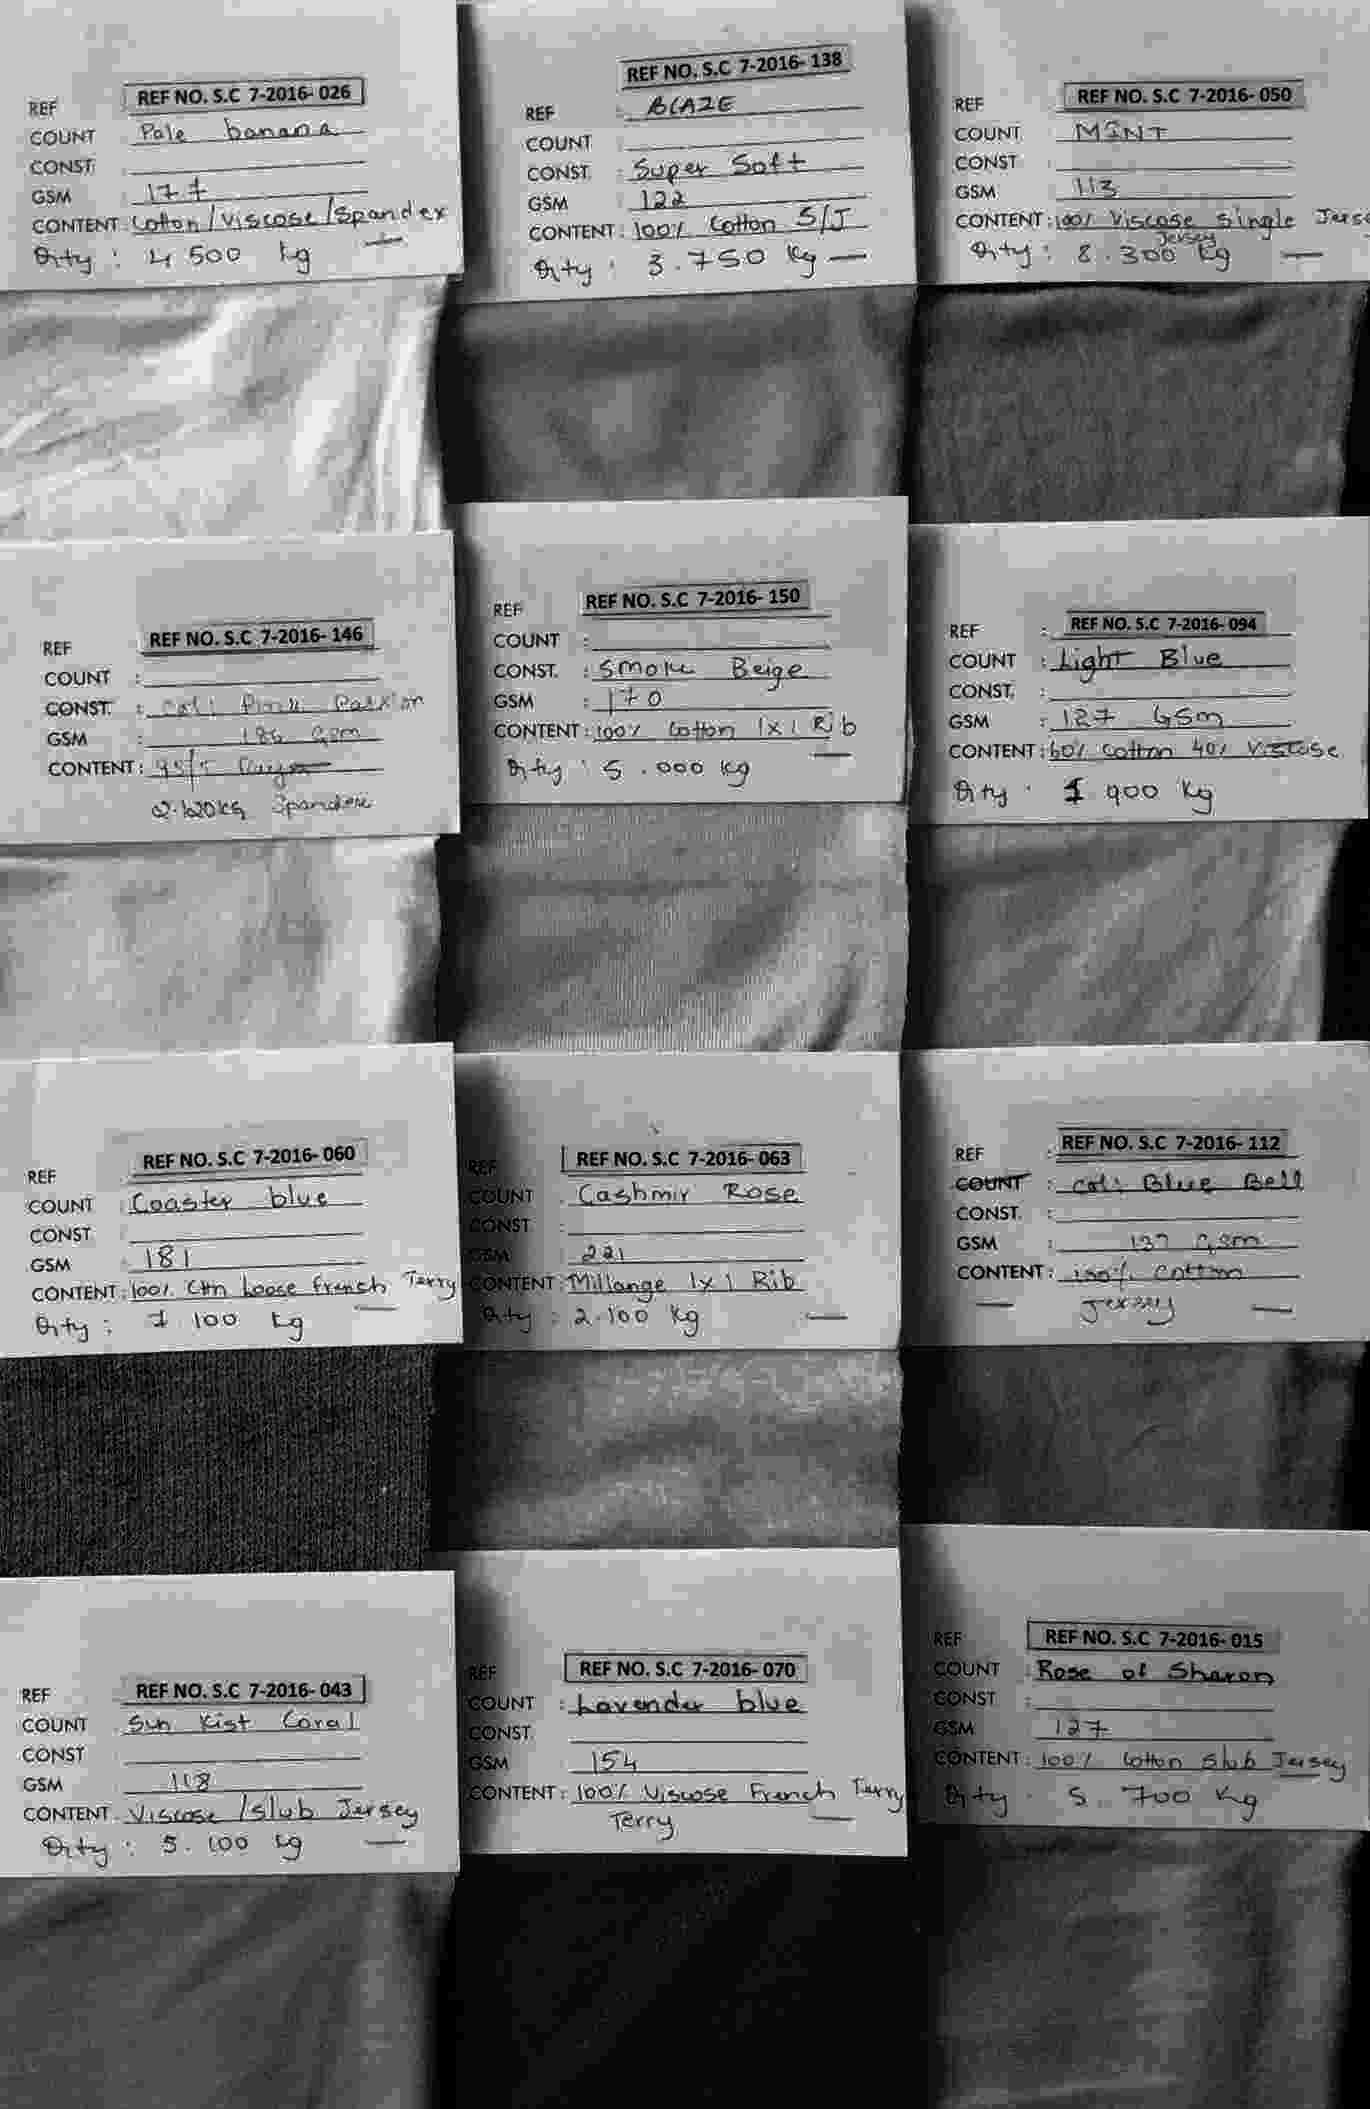 REF REF NO. S.C 7-2016-026
COUNT Pale banana
CONST.
GSM 177
CONTENT: Cotton/Viscose/Spandex
Qty : 4 500 kg
REF NO. S.C 7-2016-138
REF : BLAZE
COUNT
CONST. : Super Soft
GSM : 122
CONTENT : 100% Cotton S/J
Qty : 3.750 kg
REF REF NO. S.C 7-2016-050
COUNT : MINT
CONST :
GSM : 113
CONTENT: 100% Viscose Single Jersey
Jersey
Qty : 8.300 kg
REF REF NO. S.C 7-2016-146
COUNT :
CONST. : Col: Pink
GSM : 186 Gsm
CONTENT : 95/5
2.120kg Spandex
REF REF NO. S.C 7-2016-150
COUNT :
CONST. : Smoke Beige
GSM : 170
CONTENT : 100% Cotton 1x1 Rib
Qty : 5.000 kg
REF : REF NO. S.C 7-2016-094
COUNT : Light Blue
CONST. :
GSM : 127 Gsm
CONTENT : 60% Cotton 40% Viscose
Qty : 1 900 kg
REF REF NO. S.C 7-2016-060
COUNT Coaster blue
CONST
GSM : 181
CONTENT : 100% Cttn Loose French Terry
Qty : 7 100 kg
REF REF NO. S.C 7-2016-063
COUNT Cashmir Rose
CONST
GSM 221
CONTENT: Millange 1x1 Rib
Qty : 2.100 kg
REF : REF NO. S.C 7-2016-112
COUNT : Col: Blue Bell
CONST. :
GSM : 137 Gsm
CONTENT : 100% Cotton
Jersey
REF REF NO. S.C 7-2016-043
COUNT Sun Kist Coral
CONST
GSM 118
CONTENT. Viscose/Slub Jersey
Qty : 5.100 kg
REF REF NO. S.C 7-2016-070
COUNT : Lavender blue
CONST.
GSM 154
CONTENT: 100% Viscose French Terry
Terry
REF REF NO. S.C 7-2016-015
COUNT Rose of Sharon
CONST :
GSM 127
CONTENT : 100% Cotton Slub Jersey
Qty . 5. 700 kg